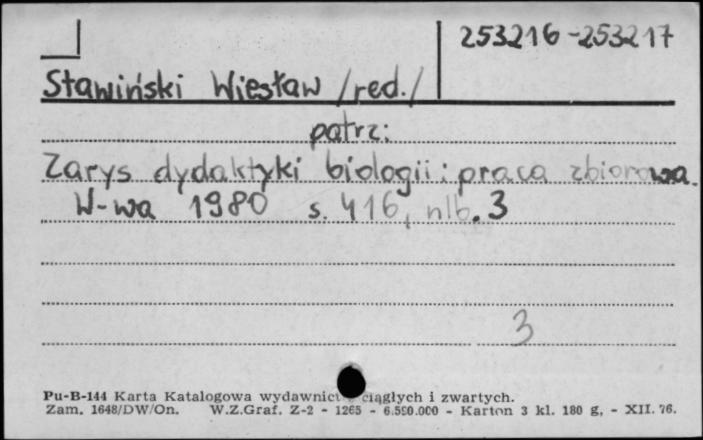 253216-253217
Stawiński Wiesław /red./
patrz:
Zarys dydaktyki biologii: praca zbiorowa.
W-wa 1980 s. 416, nlb. 3
3
Pu-B-144 Karta Katalogowa wydawnict ciągłych i zwartych.
Zam. 1648/DW/On. W.Z.Graf. Z-2 - 1265 - 6.550.000 - Karton 3 kl. 180 g, - XII. 76.